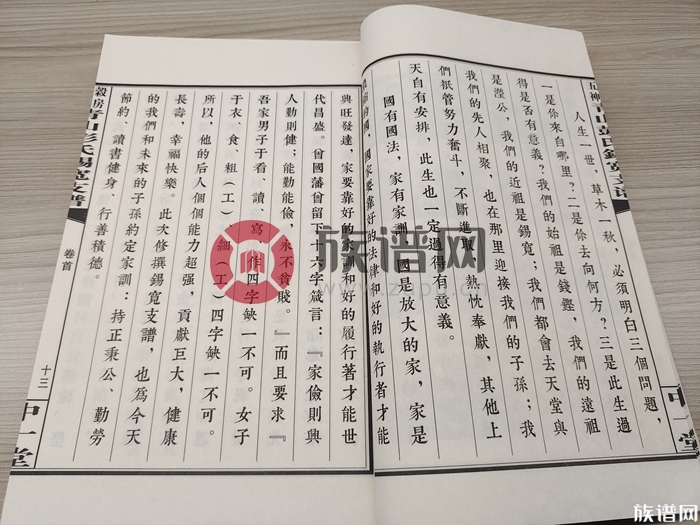 人生一世，草木一秋，必須明白三個問題，
一是你來自哪里？二是你去向何方？三是此生過
得是否有意義？我們的始祖是錢鏗，我們的遠祖
是瀅公，我們的近祖是錫寬；我們都會去天堂與
我們的先人相聚，也在那里迎接我們的子孫；我
們衹管努力奮斗，不斷進取，熱忱奉獻，其他上
天自有安排，此生也一定過得有意義。
國有國法，家有家訓，國是放大的家，家是
國，國家要靠好的法律和好的執行者才能
興旺發達，家要靠好的家訓和好的履行著才能世
代昌盛。曾國藩曾留下十六字箴言：『家儉則興
人勤則健；能勤能儉，永不貧賤。』而且要求『
吾家男子于看、讀、寫、作四字缺一不可。女子
于衣、食、粗（工）、細（工）四字缺一不可。
所以，他的后人個個能力超强，貢獻巨大，健康
長壽，幸福快樂。此次修撰錫寬支譜，也爲今天
的我們和未來的子孫約定家訓：持正秉公、勤勞
節約、讀書健身、行善積德。
穀房青山彭氏錫寬支譜
卷首
十三
中一堂
族谱网
族谱网